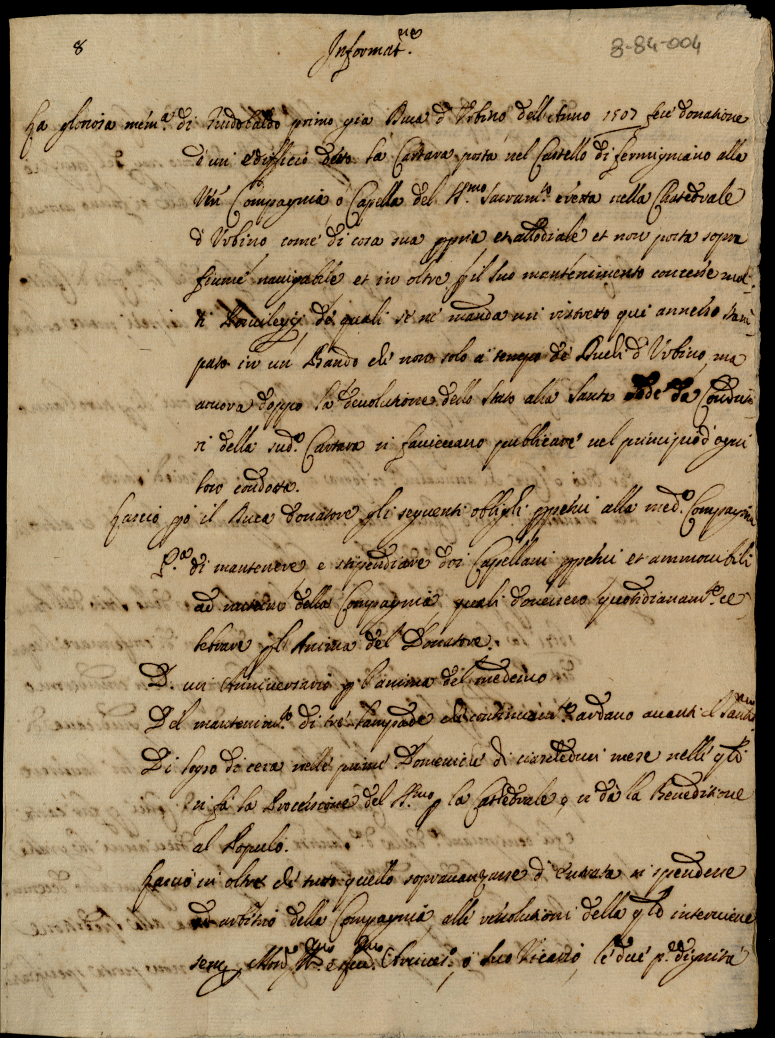 8 Informat.ne 8-84-004
La gloriosa mem.a di Guidobaldo primo già Duca d'Urbino dell'Anno 1507 fece donatione
d'un edifficio detto la Cartara posta nel Castello di fermigniano alla
Ven Compagnia ò Capella del S.mo Sacram.to eretta nella Chatedrale
d'Urbino come di cosa sua ppria et allodiale et non posta sopra
fiume navigabile et in oltre p il suo mantenimento concesse mol-
ti Privilegij de quali se ne manda un ristretto qui annesso stam
pato in un Bando che non solo a tempo de Duchi d'Urbino, ma
ancora doppo la devolutione dello Stato alla Santa Sede da Condutto
ri della sud.a Cartara si facevano publicare nel principio d'ogni
loro condotta.
Lasciò pò il Duca donatore gli seguenti oblighi ppetui alla med.a Compagnia
P.o di mantenere e stipendiare doi Capellani ppetui et ammovibili
ad nutum della Compagnia, quali dovessero quotidianam.te ce
lebrare p l'Anima del Donatore.
D. un Anniversario p l'anima del medemo
Del mantenim.to di tre lampade che continuam.te ardano avanti il Sant.mo
Di sopra di cera nelle prime Domeniche di ciascheduni mese nelle qli
si fà la Processione del S.mo p la Catedrale e si dà la Benedizione
al Populo.
Lasciò in oltre che tutto quello sopravanzasse d'Entrata si spendesse
ad arbitrio della Compagnia, alle resolutioni della qle interviene
semp Mons.r Arcives.o, ò suo Vicario, le due p.e dignità